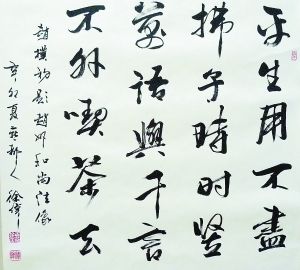 平生用不盡
拂子時时竖
萬語與千言
不外喫茶去
趙樸初題趙州和尚法像
辛卯夏 人徐偉